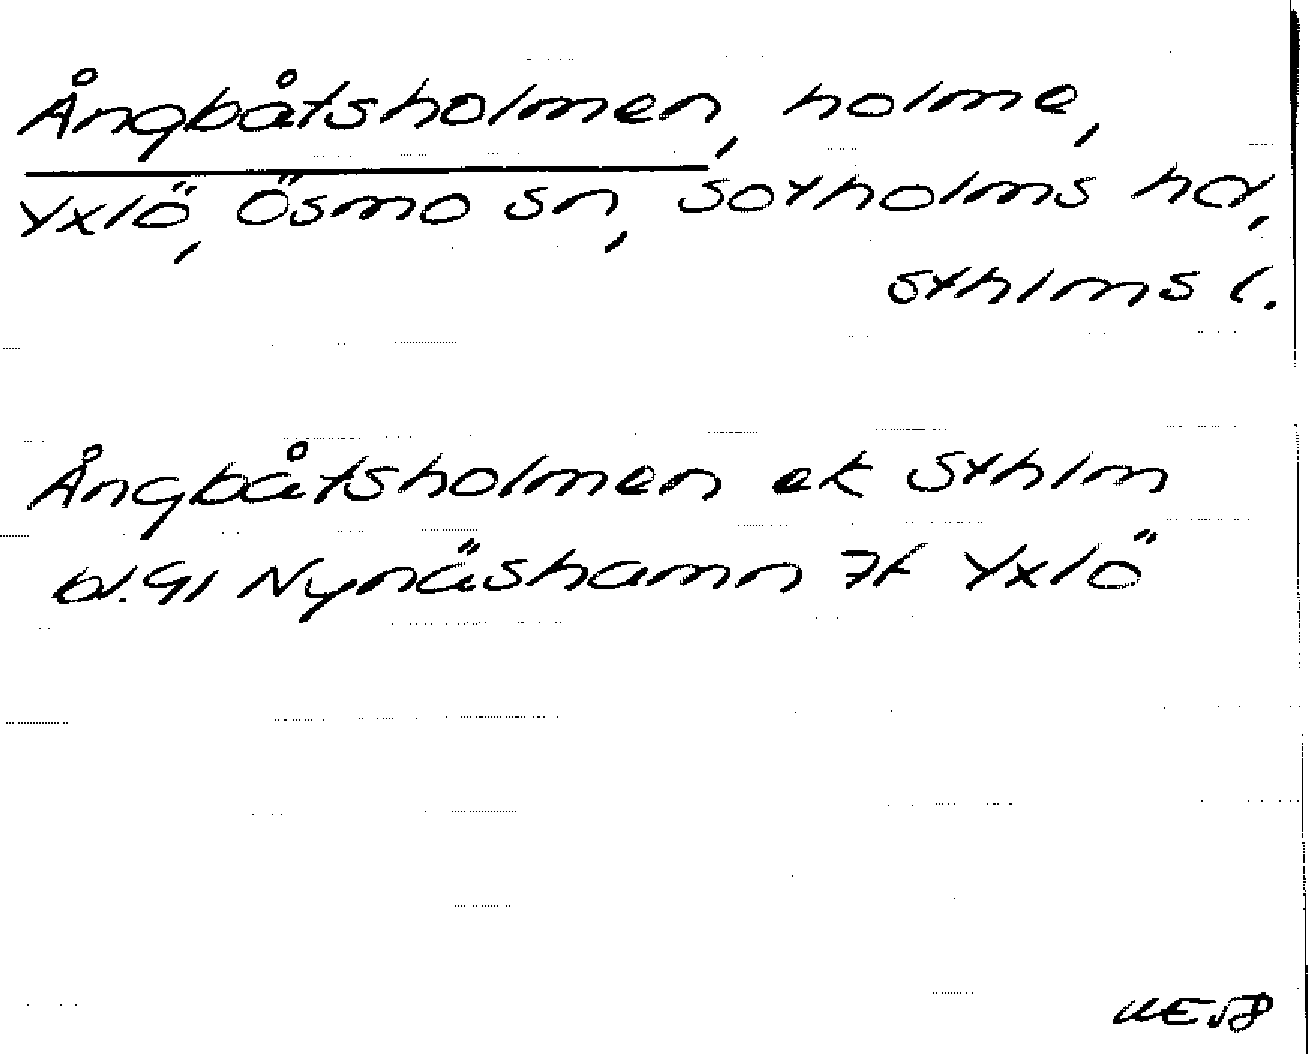 Ångbåtsholmen, holme,
Yxlö, Ösmo sn, Sotholms hd,
Sthlms l.
Ångbåtsholmen ek Sthlm
bl. 91 Nynäshamn 7f Yxlö